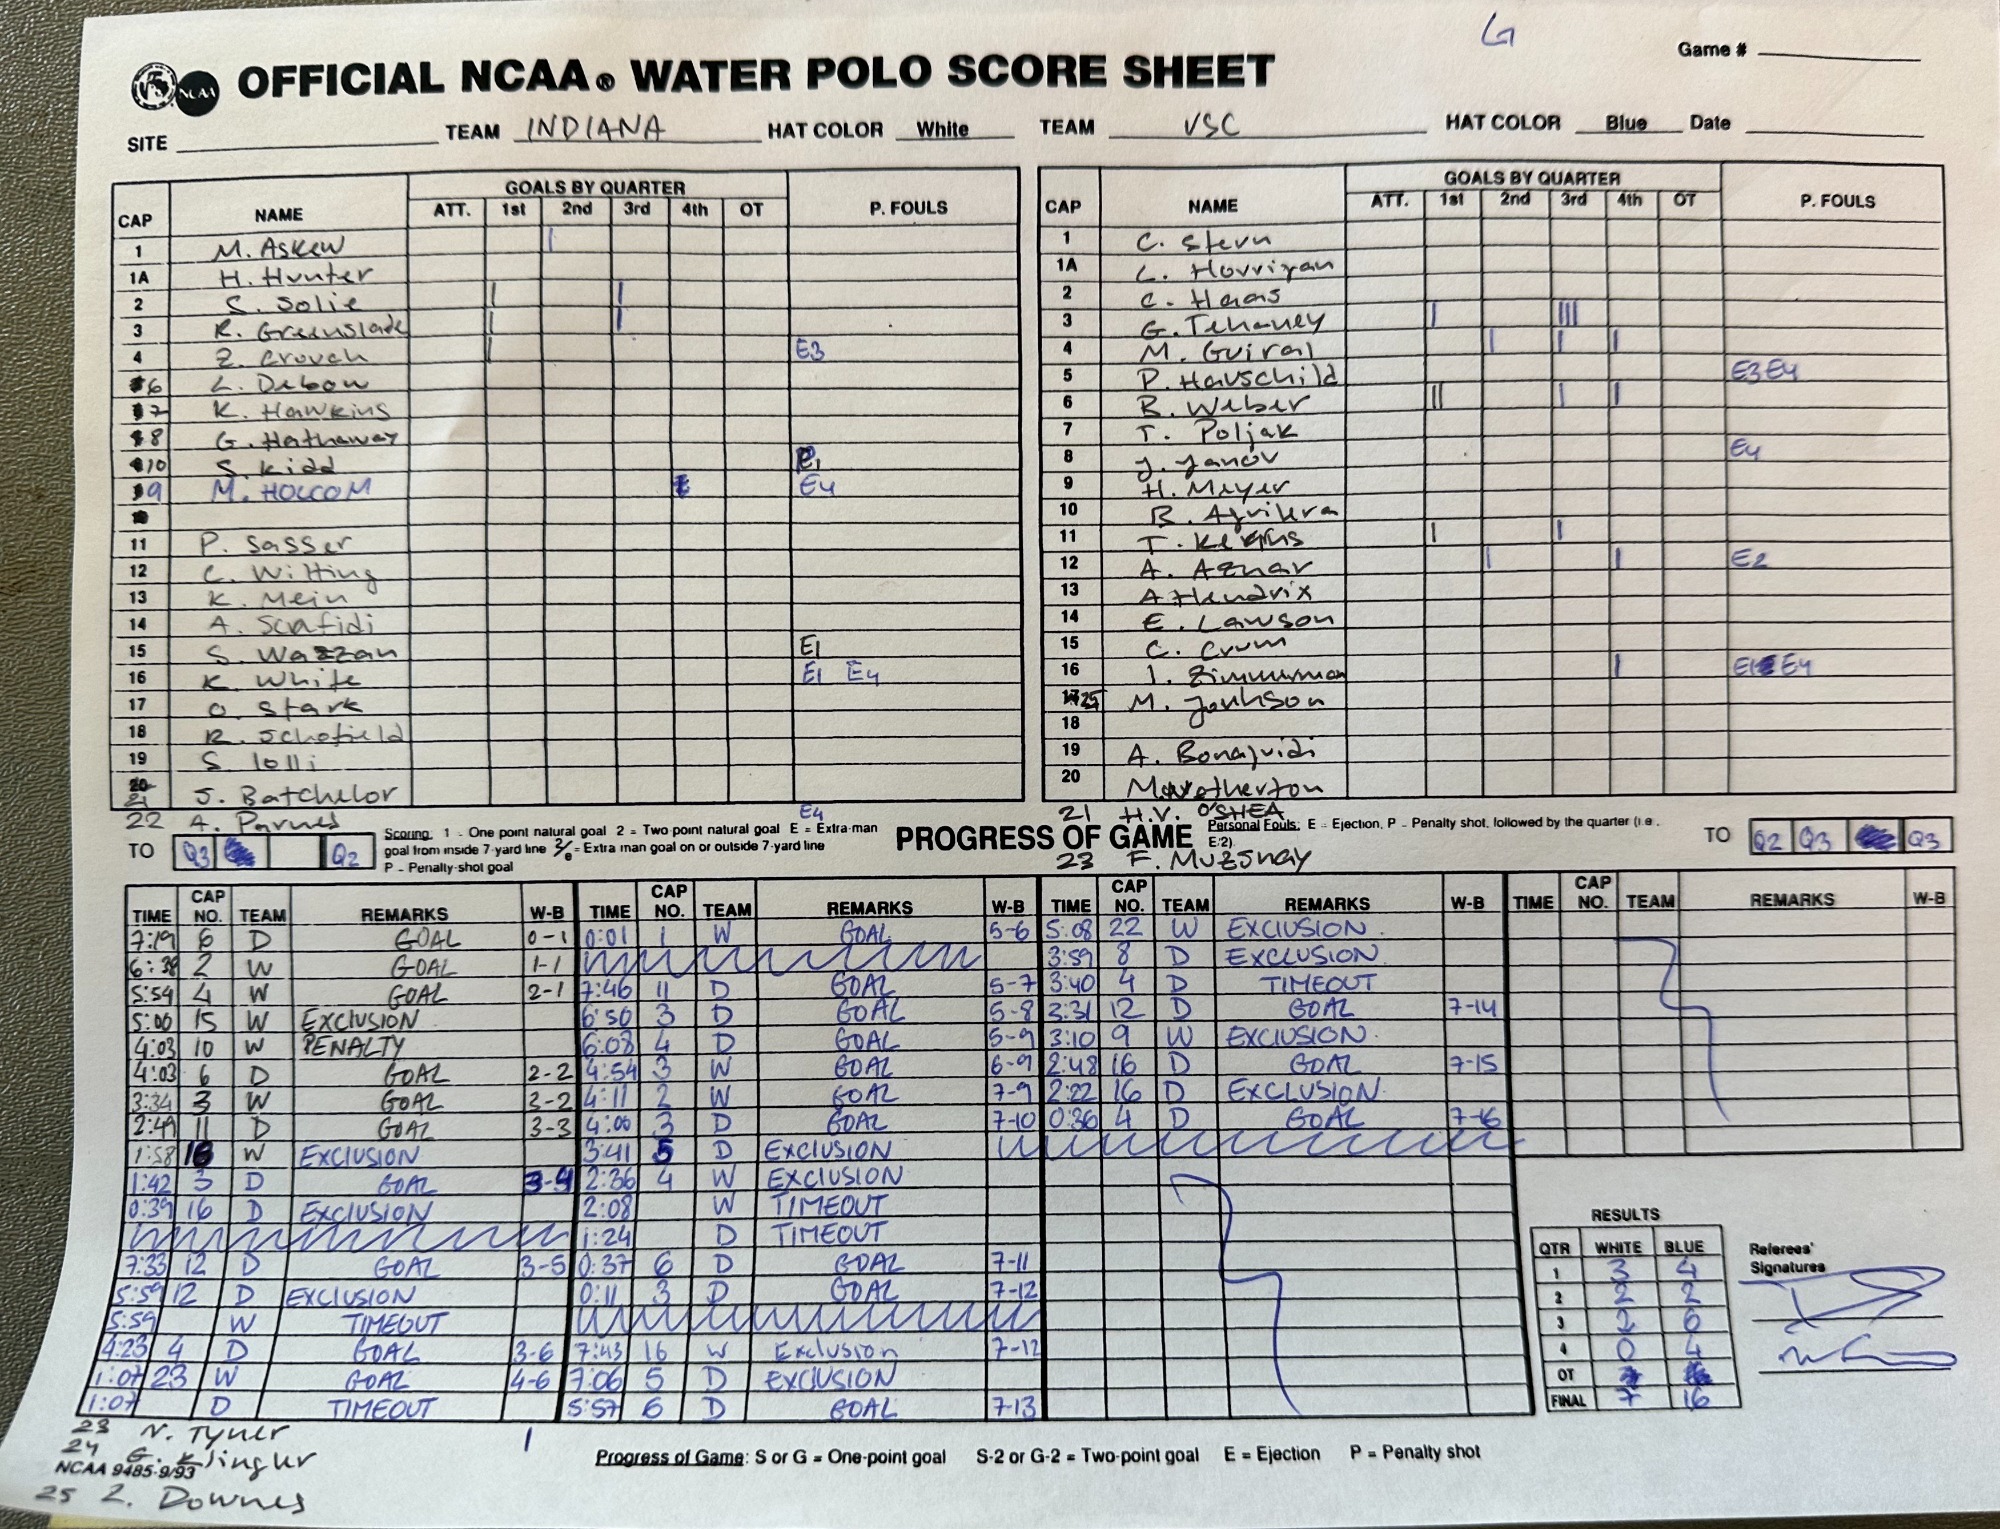 G
Game #
OFFICIAL NCAA® WATER POLO SCORE SHEET
SITE TEAM INDIANA HAT COLOR White TEAM USC HAT COLOR Blue Date
GOALS BY QUARTER
CAP NAME ATT. 1st 2nd 3rd 4th OT P. FOULS
1 M. Askew |
1A H. Hunter
2 S. Solie | |
3 R. Greenslade | |
4 Z. Crouch | E3
6 L. Debow
7 K. Hawkins
8 G. Hathaway
10 S. Kidd
9 M. HOLCOM E4
11 P. Sasser
12 C. Witting
13 K. Mein
14 A. Scafidi
15 S. Wazzan E1
16 K. White E1 E4
17 O. Stark
18 R. Schofield
19 S. lolli
21 J. Batchelor
22 A. Parnes E4
GOALS BY QUARTER
CAP NAME ATT. 1st 2nd 3rd 4th OT P. FOULS
1 C. Stern
1A L. Horrigan
2 C. Haas
3 G. Tehaney | |||
4 M. Guiral | | |
5 P. Hauschild E3 E4
6 B. Weber || | |
7 T. Poljak
8 J. Janov E4
9 H. Meyer
10 B. Aguilera
11 T. | |
12 A. Aznar | | E2
13 A Hendrix
14 E. Lawson
15 C. Crum
16 I. Zimmerman | E1 E4
25 M. Jonhson
18
19 A. Bonaguidi
20
21 H.V. O'SHEA
23 F. Muzsnay
TO Q3 Q2
Scoring: 1 - One point natural goal 2 = Two-point natural goal E = Extra-man
goal from inside 7-yard line 2/e = Extra man goal on or outside 7-yard line
P - Penalty-shot goal
PROGRESS OF GAME
Personal Fouls: E = Ejection, P - Penalty shot, followed by the quarter (i.e.
E/2).
TO Q2 Q3 Q3
TIME CAP NO. TEAM REMARKS W-B
7:19 6 D GOAL 0-1
6:38 2 W GOAL 1-1
5:54 4 W GOAL 2-1
5:00 15 W EXCLUSION
4:03 10 W PENALTY
4:03 6 D GOAL 2-2
3:34 3 W GOAL 3-2
2:49 11 D GOAL 3-3
1:58 16 W EXCLUSION
1:42 3 D GOAL 3-4
0:39 16 D EXCLUSION
7:33 12 D GOAL 3-5
5:59 12 D EXCLUSION
5:59 W TIMEOUT
4:23 4 D GOAL 3-6
1:07 23 W GOAL 4-6
1:07 D TIMEOUT
TIME CAP NO. TEAM REMARKS W-B
0:01 1 W GOAL 5-6
7:46 11 D GOAL 5-7
6:50 3 D GOAL 5-8
6:08 4 D GOAL 5-9
4:54 3 W GOAL 6-9
4:11 2 W GOAL 7-9
4:00 3 D GOAL 7-10
3:41 5 D EXCLUSION
2:36 4 W EXCLUSION
2:08 W TIMEOUT
1:24 D TIMEOUT
0:37 6 D GOAL 7-11
0:11 3 D GOAL 7-12
7:43 16 W Exclusion 7-12
7:06 5 D EXCLUSION
5:57 6 D GOAL 7-13
TIME CAP NO. TEAM REMARKS W-B
5:08 22 W EXCLUSION
3:59 8 D EXCLUSION
3:40 4 D TIMEOUT
3:31 12 D GOAL 7-14
3:10 9 W EXCLUSION
2:48 16 D GOAL 7-15
2:22 16 D EXCLUSION
0:36 4 D GOAL 7-16
TIME CAP NO. TEAM REMARKS W-B
RESULTS
QTR WHITE BLUE
1 3 4
2 2 2
3 2 6
4 0 4
OT
FINAL 7 16
Referees'
Signatures
23 N. Tyner
24 G. Klinger
NCAA 9485-9/93
25 Z. Downes
Progress of Game: S or G = One-point goal S-2 or G-2 = Two-point goal E = Ejection P = Penalty shot